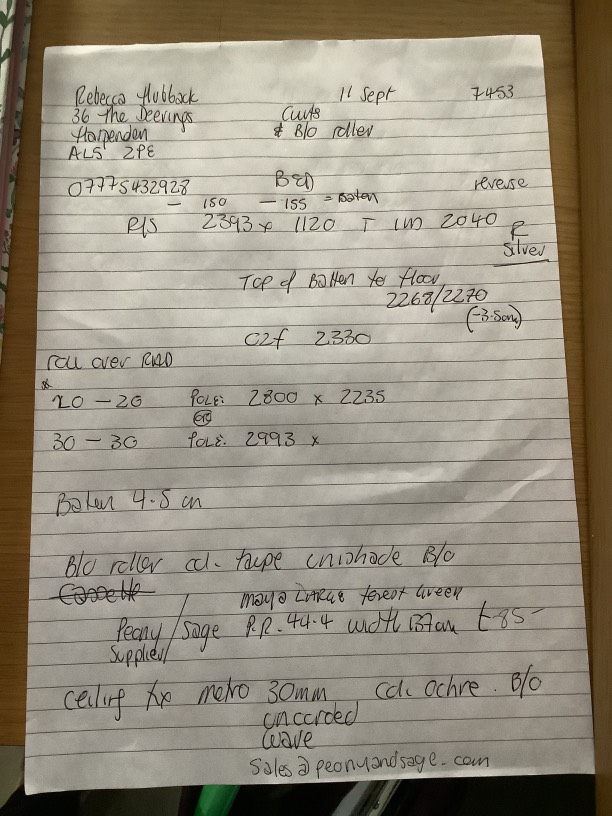 Rebecca Hubback 11 Sept 7453
36 The Deerings Curts
Harpenden & B/O roller
AL5 2PE
07775432928 BED reverse
– 150 – 155 = Baten
R/S 2393 x 1120 T 2040 R
Silver
Top of Batten to floor
2268/2270
(-3.5cm)
C2f 2330
roll over
20 – 20 Pole: 2800 x 2235
30 – 30 Pole: 2993 x
Baten 4.5 cm
B/O roller col. taupe unishade B/O
Cassette
maya forest Green
Peony / Sage P.R. 44.4 width 137cm £85-
Supplied
Ceiling fix metro 30mm col. Ochre. B/O
uncorded
wave
sales@peonyandsage.com